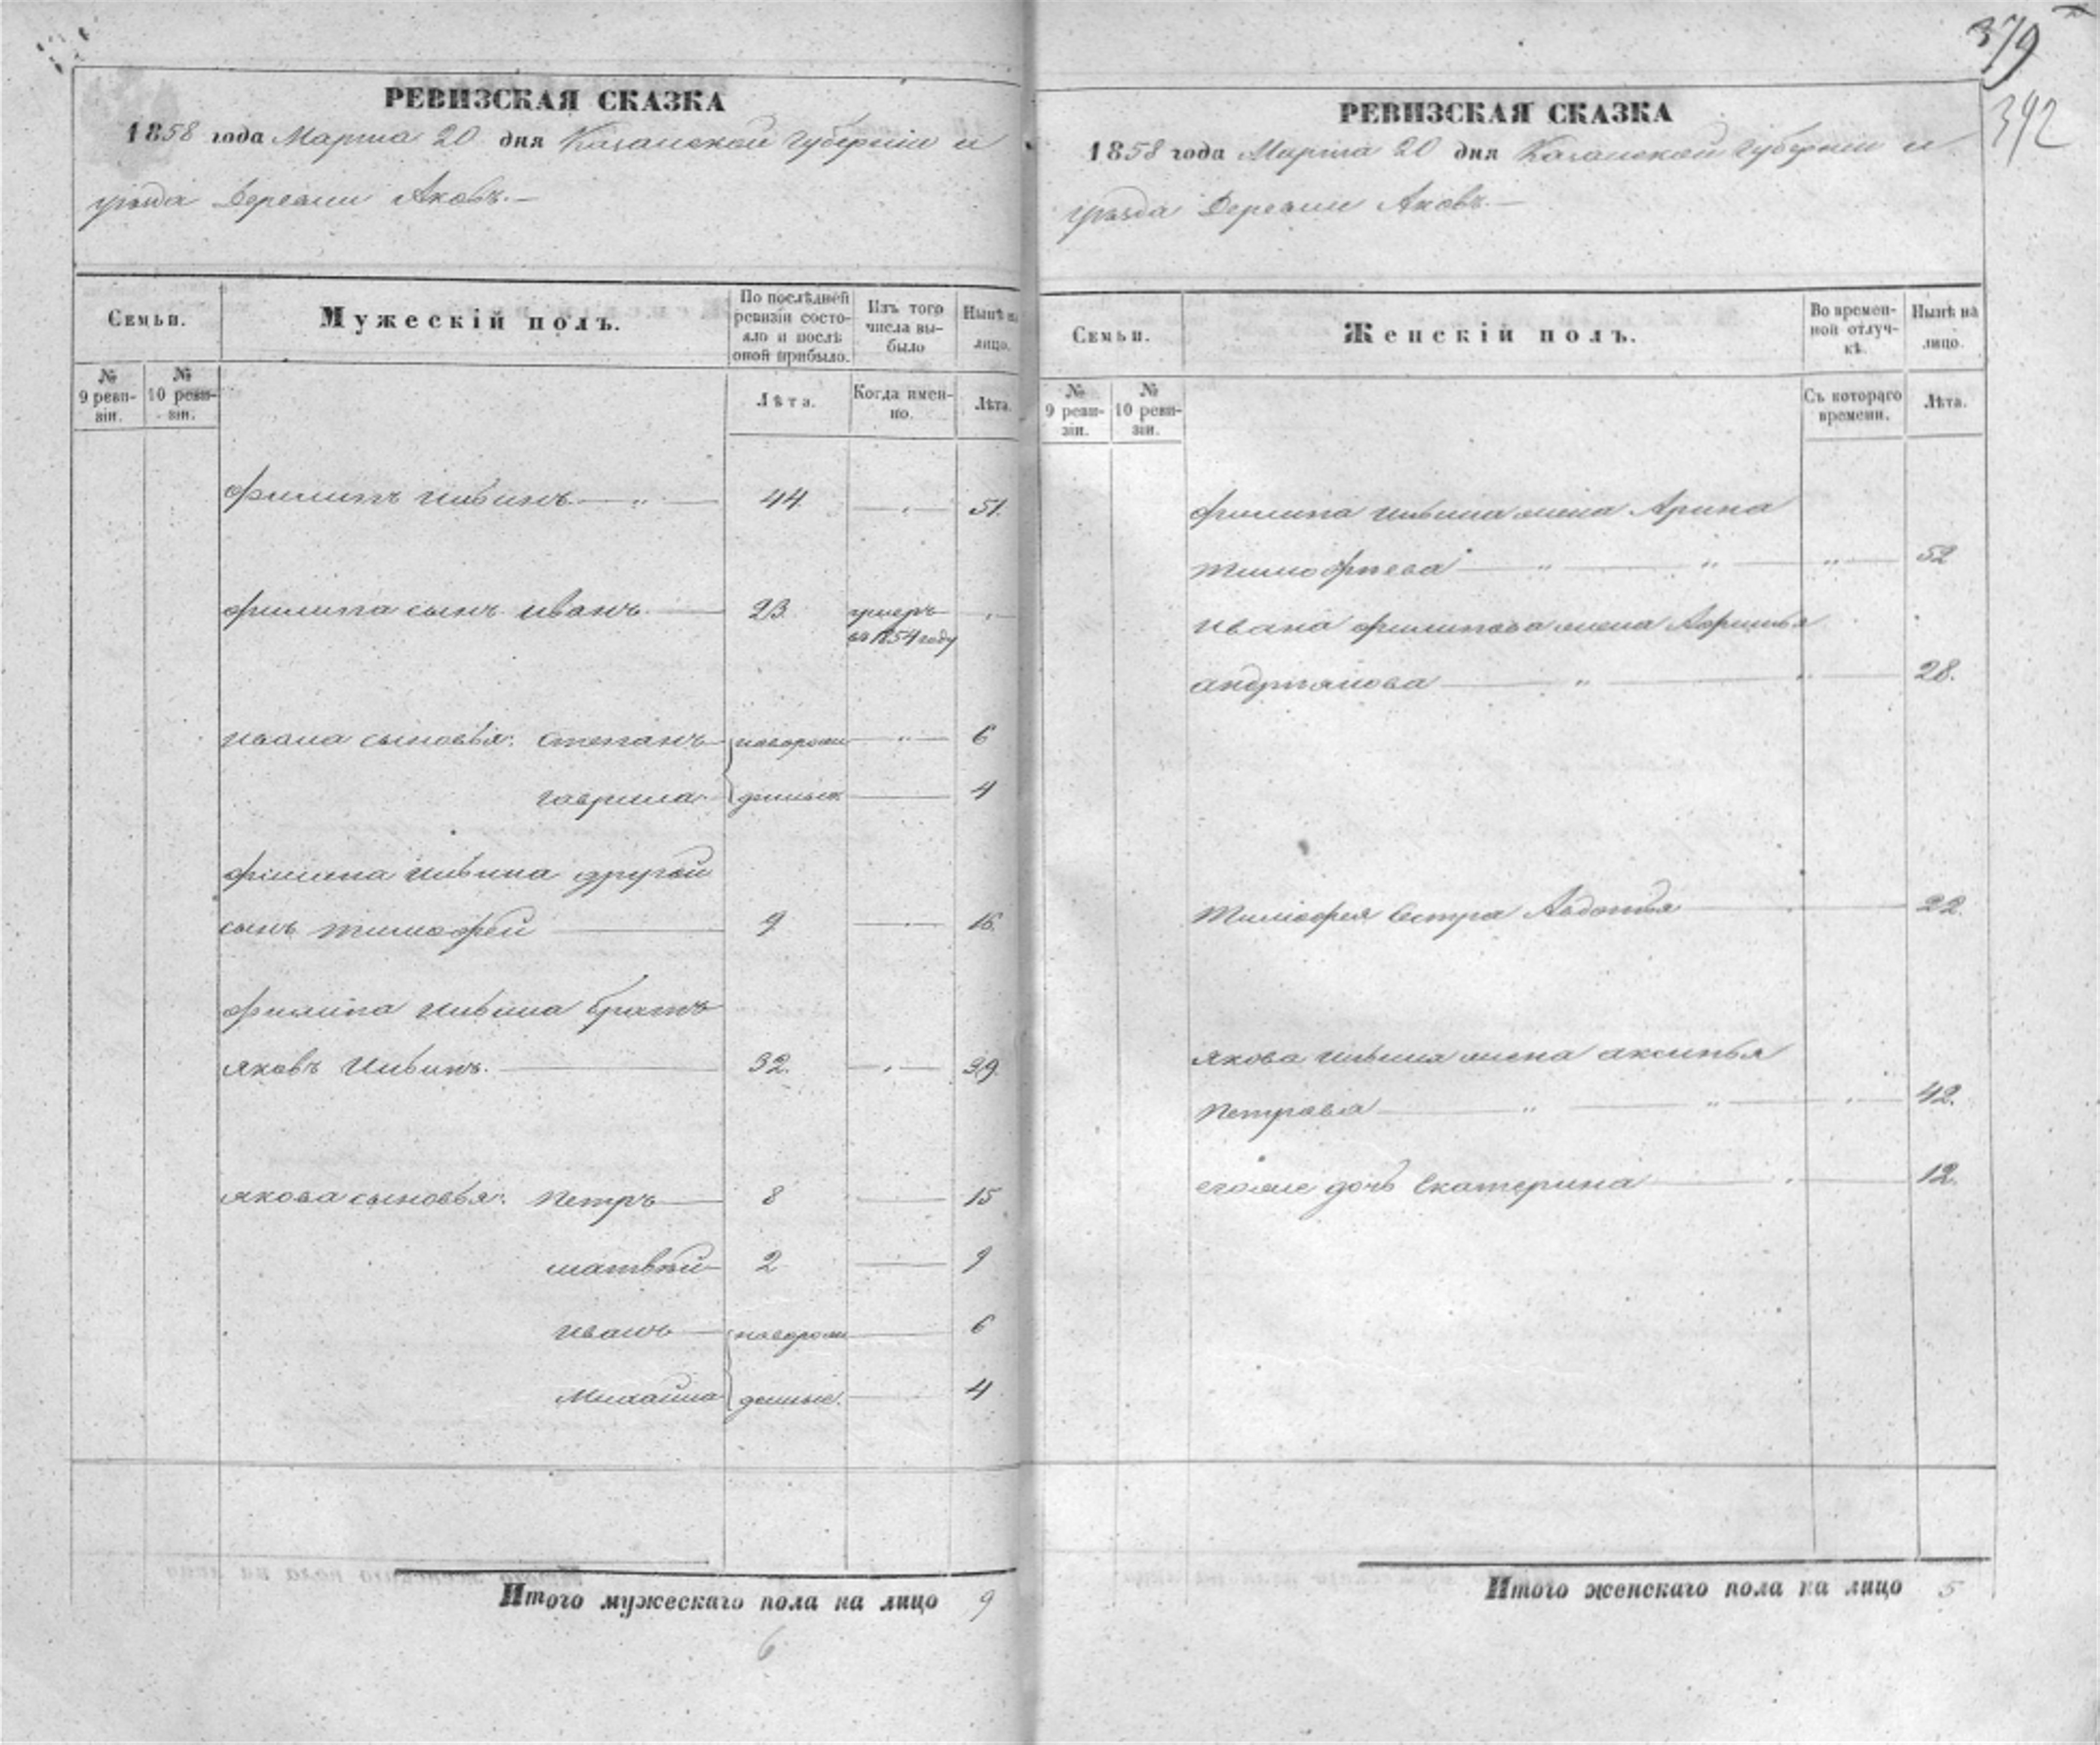 379
392
РЕВИЗСКАЯ СКАЗКА
1858 года Марта 20 дня Казанской Губерніи и
уѣзда Деревни Аковъ.—
Семьи.
Мужескій полъ.
По послѣдней ревизіи состояло и послѣ оной прибыло.
Изъ того числа выбыло
Нынѣ на лицо.
№ 9 ревизіи.
№ 10 ревизіи.
Лѣта.
Когда именно.
Лѣта.
Филипъ Ильинъ — „ — 44. — 51.
Филипа сынъ Иванъ — 23 умеръ въ 1854 году „
Ивана сыновья: Степанъ — новорож — „ — 6
Гаврила — денные — 4
Филипа Ильина другой
сынъ Тимофей — 9 — 16.
Филипа Ильина братъ
Яковъ Ильинъ. — 32. — 39.
Якова сыновья: Петръ — 8 — 15
Матвѣй — 2 — 9
Иванъ — новорож — 6
Михайла денные. — 4
Итого мужескаго пола на лицо 9
6
РЕВИЗСКАЯ СКАЗКА
1858 года Марта 20 дня Казанской Губерніи и
уѣзда Деревни Аковъ.—
Семьи.
Женскій полъ.
Во временной отлучкѣ.
Нынѣ на лицо.
№ 9 ревизіи.
№ 10 ревизіи.
Съ котораго времени.
Лѣта.
Филипа Ильина жена Арина
Тимофѣева — „ — „ — „ — 52
Ивана Филипова жена Афимья
Андріянова — „ — 28.
Тимофея Сестра Авдотья — 22.
Якова Ильина жена Аксинья
Петрова — „ — „ — 42.
егоже дочь Екатерина — 12.
Итого женскаго пола на лицо 5